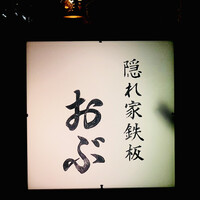 隠れ家鉄板
おぶ